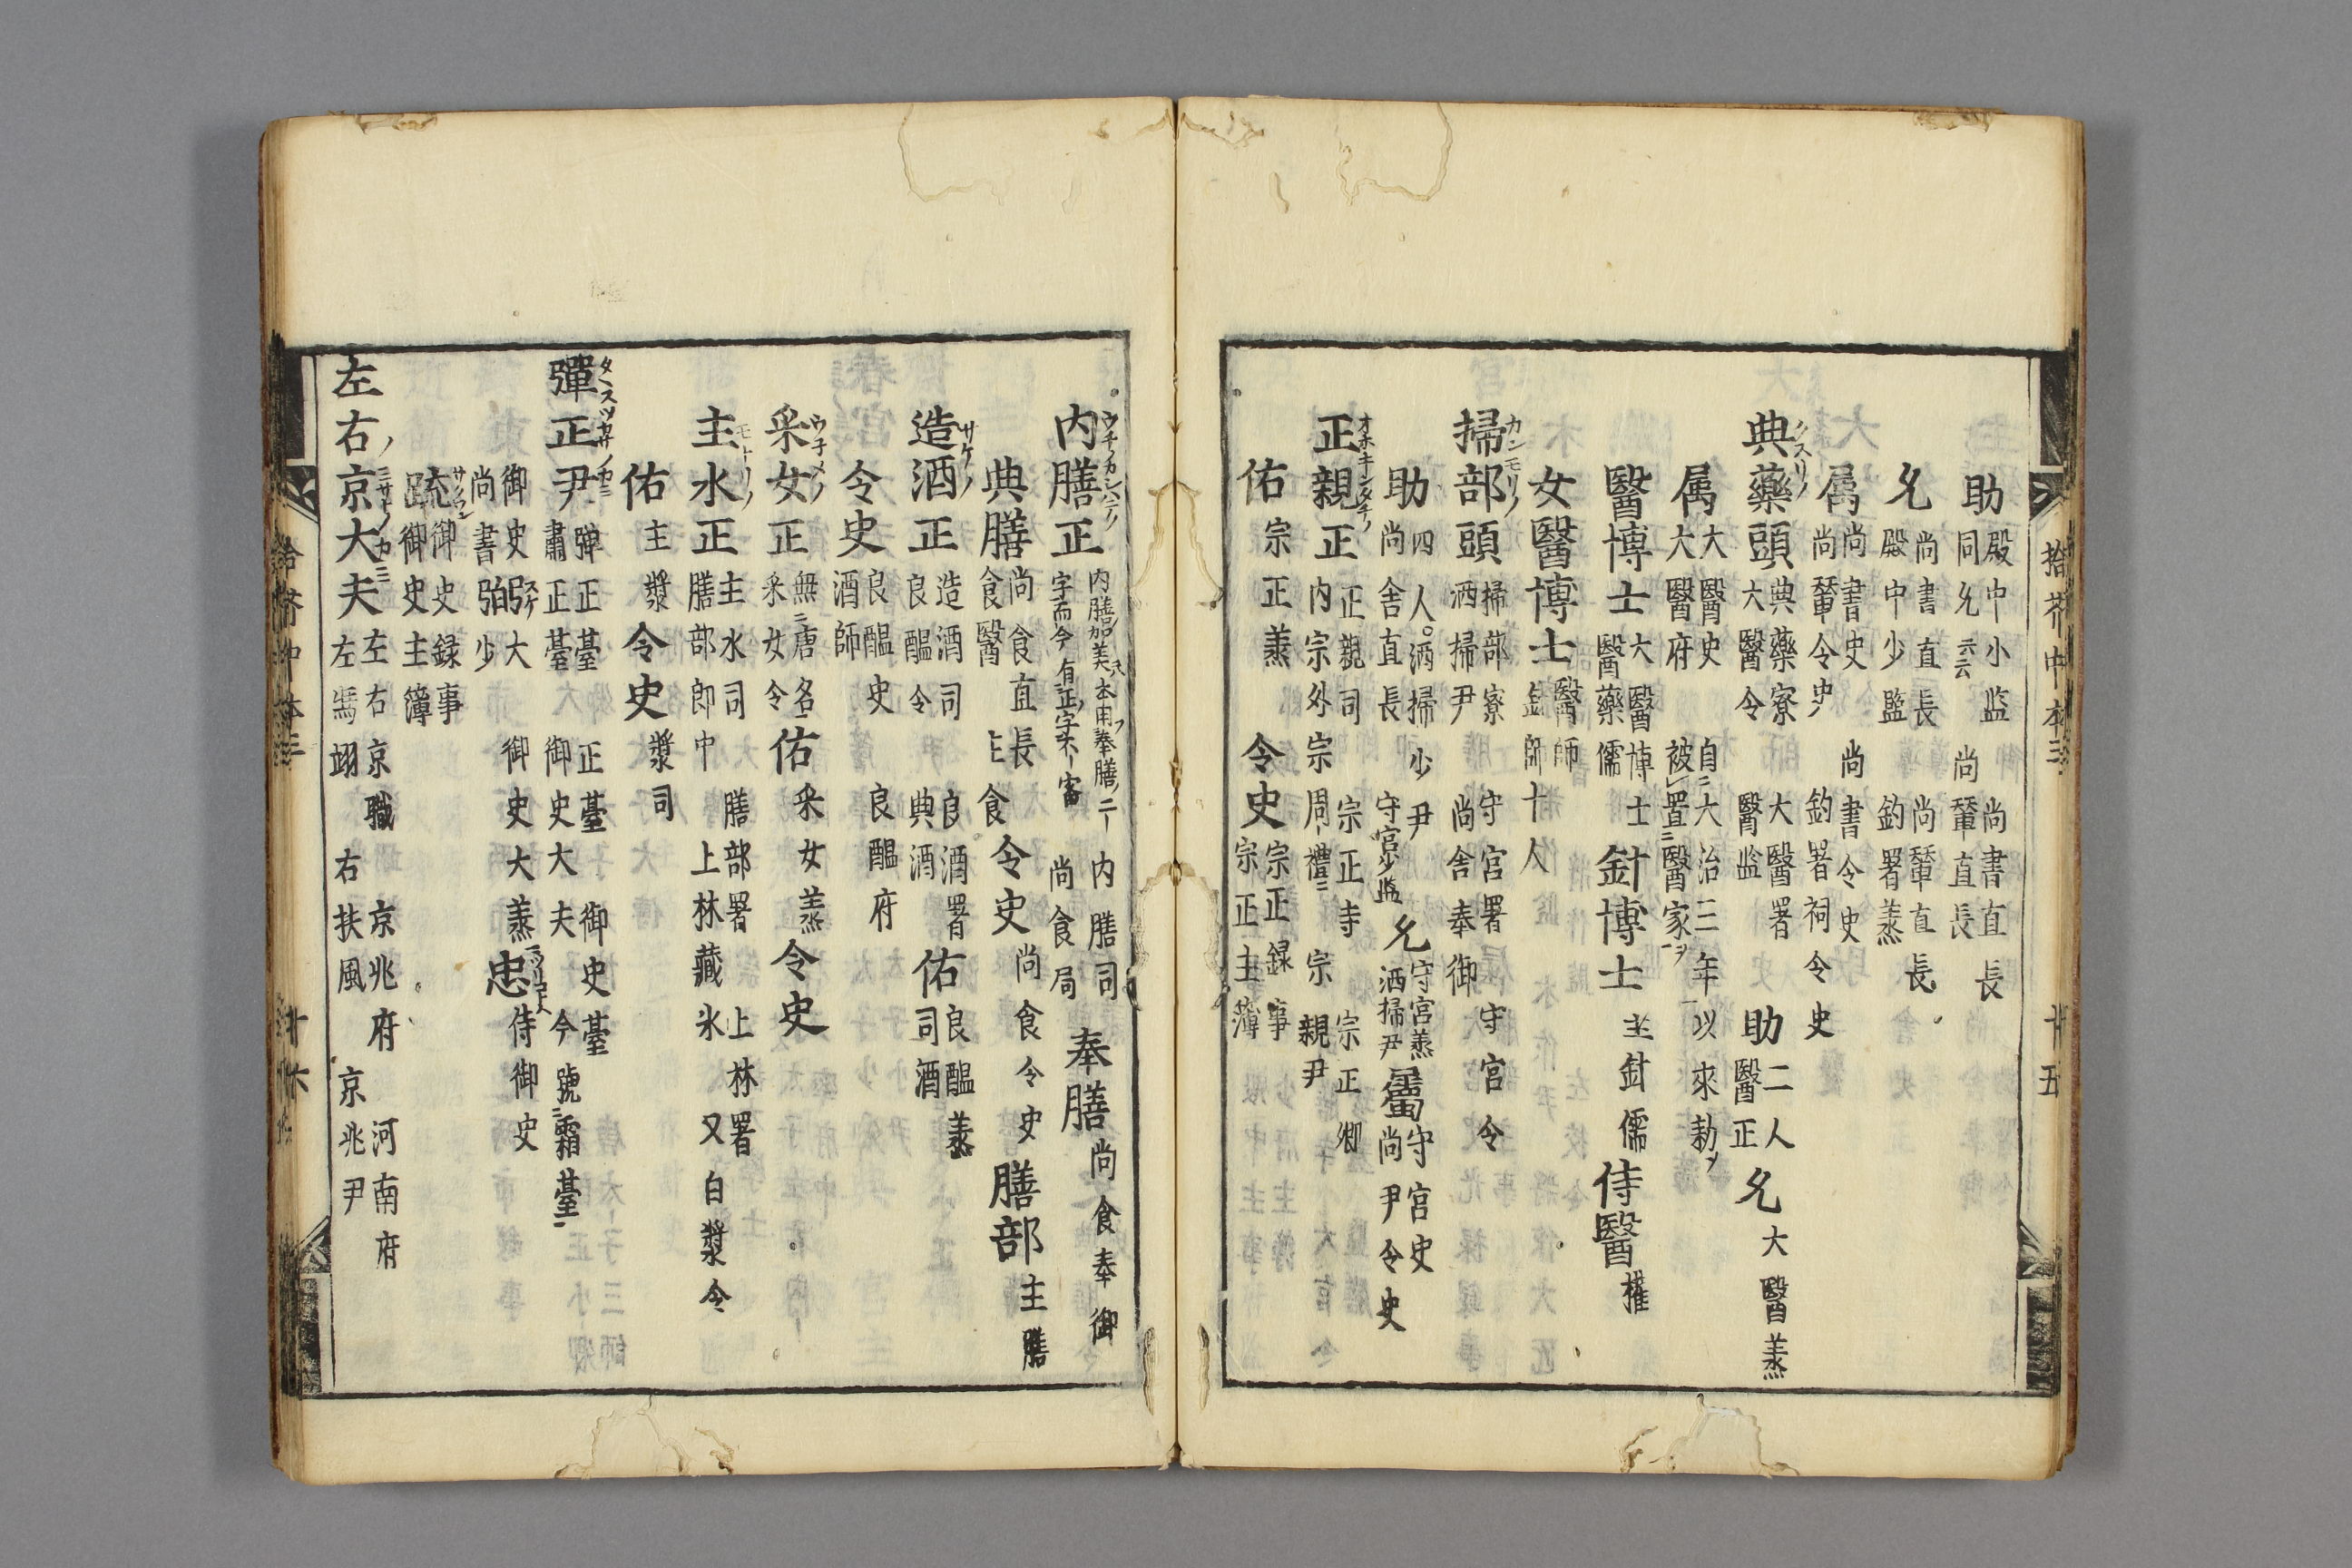 拾芥中本三 廿五
助 殿中小監 尚書直長
同允云云 尚輦直長
允 尚書直長 尚輦直長
殿中少監 釣署丞
属 尚書史 尚書令史
尚輦令史 釣署祠令史
典藥頭 典藥寮 大醫署
大醫令 醫監
助 二人
醫正
允 大醫丞
属 大醫史
大醫府
自大治二年以來勅
被置醫家
醫博士 大醫博士
醫藥儒
針博士 主針儒
侍醫 權
女醫博士 醫師
針師十人
掃部頭 掃部寮 守宮署 守宮令
洒掃尹 尚舎奉御
助 四人 洒掃少尹
尚舎直長 守宮少監
允 守宮丞
洒掃尹
屬 守宮史
尚尹令史
正親正 正親司 宗正寺 宗正卿
内宗外宗 周禮 宗親尹
佑 宗正丞
令史 宗正録事
宗正主簿
内膳正 内膳加美 本用奉膳二
字而今有正字不審
内膳司
尚食局
奉膳 尚食奉御
典膳 尚食直長
食醫 主食
令史 尚食令史
膳部 主膳
造酒正 造酒司 良酒署
良醞令 典酒
佑 良醞丞
司酒
令史 良醞史 良醞府
酒師
采女正 無唐名
采女令
佑 采女丞
令史
主水正 主水司 膳部署 上林署
膳部郎中 上林藏氷 又白漿令
佑 主漿
令史 漿司
彈正尹 彈正臺 正臺 御史臺
肅正臺 御史大夫 今號霜臺
御史 大
尚書 少
御史大丞
忠 侍御史
疏 御史録事
御史主簿
左右京大夫 左右京職 京兆府 河南府
左馮翊 右扶風 京兆尹